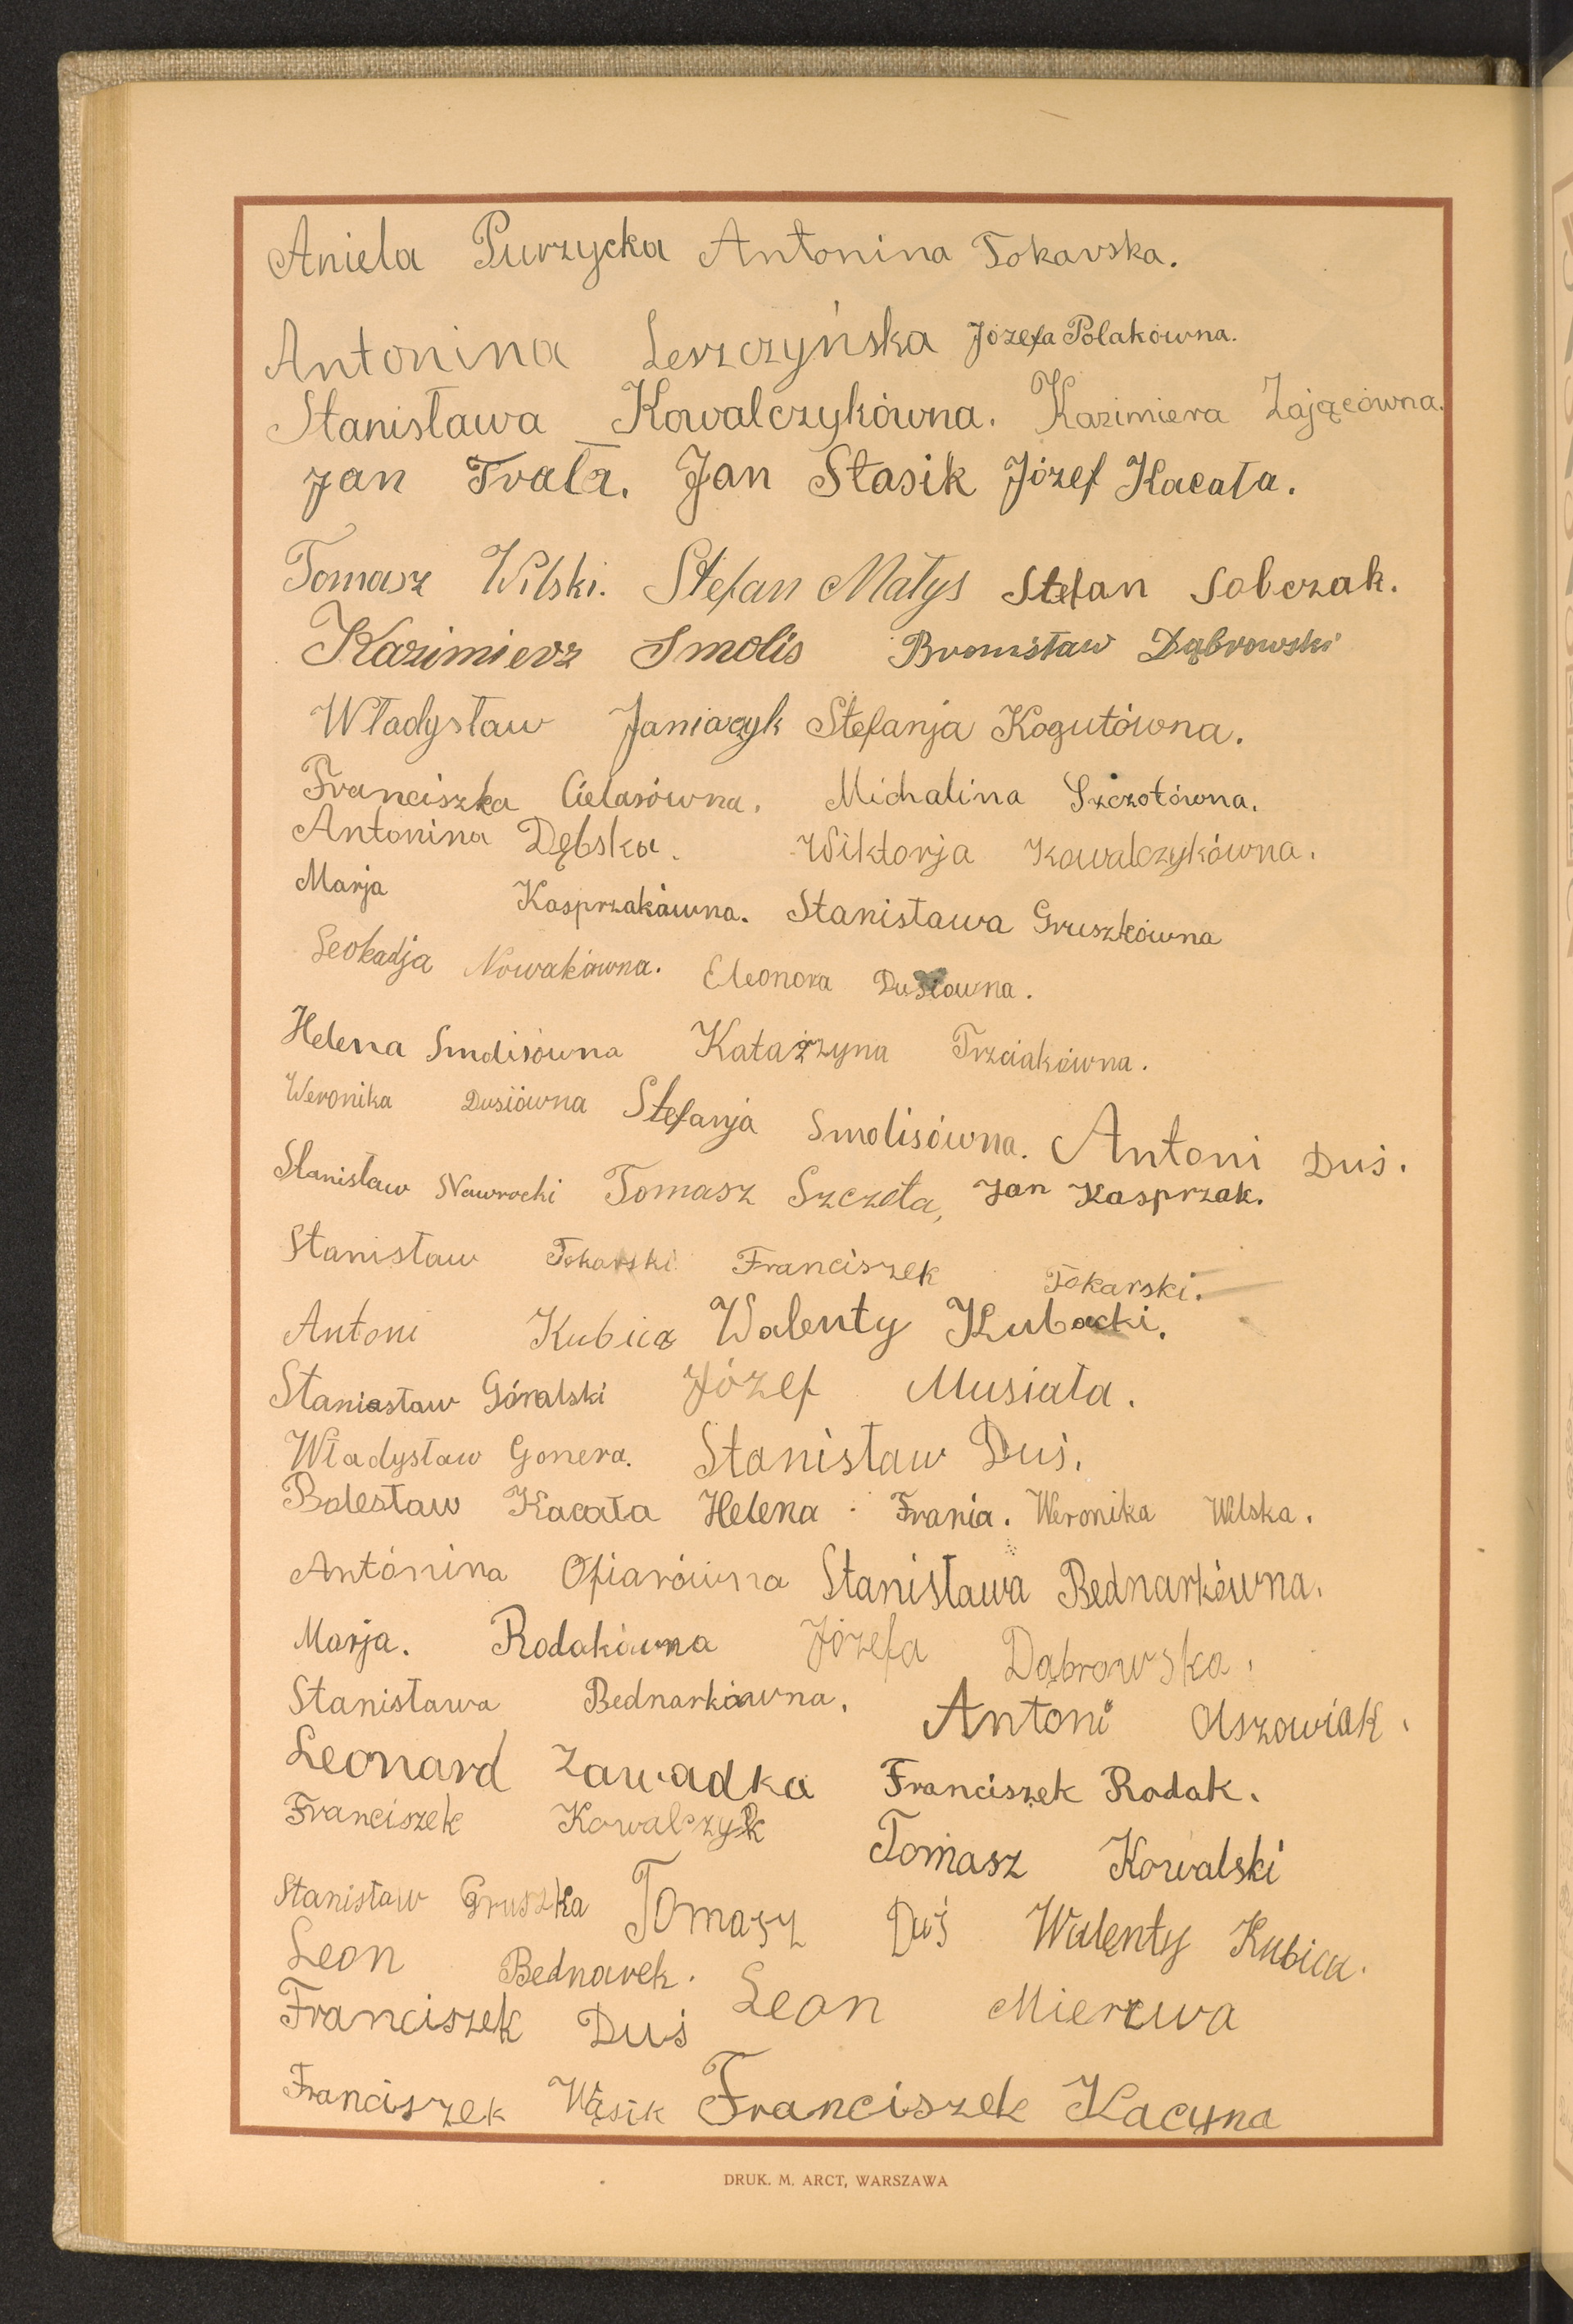 Aniela Purzycka Antonina Tokarska.
Antonina Leszczyńska Józefa Polakówna.
Stanisława Kowalczykówna. Kazimiera Zającówna.
Jan Trała. Jan Stasik Józef Kacała.
Tomasz Wilski. Stefan Małys Stefan Sobczak.
Kazimierz Smolis Bronisław Dąbrowski
Władysław Janiaczyk Stefanja Kogutówna.
Franciszka Cielasówna. Michalina Szczotówna.
Antonina Dębska. Wiktorja Kowalczykówna.
Marja Kasprzakówna. Stanisława Gruszkówna
Leokadja Nowakówna. Eleonora Dusiówna.
Helena Smolisówna Katarzyna Trzciakówna.
Weronika Dusiówna Stefanja Smolisówna. Antoni Duś.
Stanisław Nawrocki Tomasz Szczota, Jan Kasprzak.
Stanisław Tokarski Franciszek Tokarski.
Antoni Kubica Walenty Kubacki.
Staniasław Góralski Józef Musiała.
Władysław Gonera. Stanisław Duś.
Bolesław Kacała Helena Frania. Weronika Wilska.
Antónina Ofiarówna Stanisława Bednarkówna.
Marja. Rodakówna Józefa Dąbrowska.
Stanisława Bednarkówna. Antoni Olszowiak.
Leonard Zawadka Franciszek Rodak.
Franciszek Kowalczyk Tomasz Kowalski
Stanisław Gruszka Tomasz Duś Walenty Kubica.
Leon Bednarek. Leon Mierzwa
Franciszek Duś
Franciszek Wąsik Franciszek Kacyna
DRUK. M. ARCT, WARSZAWA